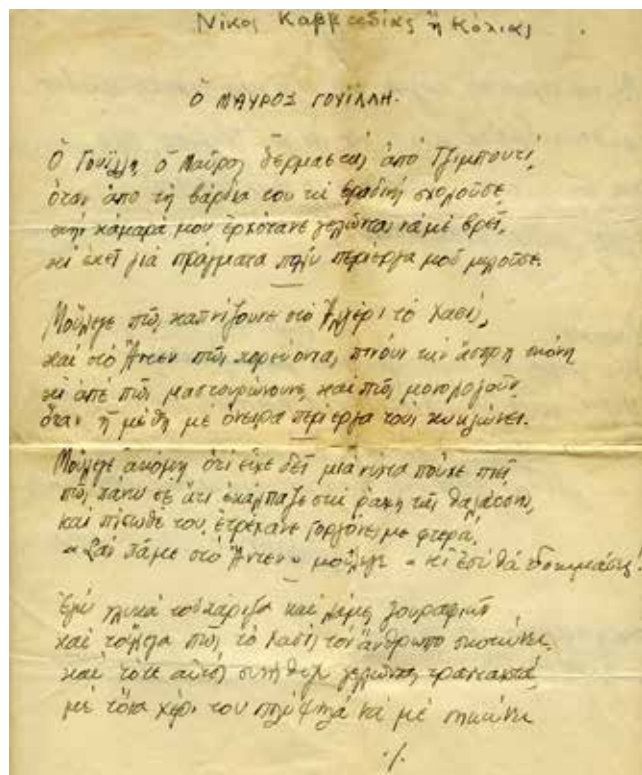 Νίκος Καββαδίας ἢ Κόλιας
Ὁ ΜΑΥΡΟΣ ΓΟΥΪΛΛΗ.
Ὁ Γουΐλλη ὁ Μαῦρος θερμαστὴς ἀπὸ Τζιμπουτί,
ὅταν ἀπὸ τὴ βάρδια του τὴ βραδινὴ σχολοῦσε
στὴν κάμαρά μου ἐρχότανε γελῶντας νὰ μὲ βρεῖ,
κι ἐκεῖ γιὰ πράγματα πολὺ περίεργα μοῦ μιλοῦσε.
Μοὔλεγε πῶς καπνίζουνε στὸ Ἀλγέρι τὸ Χασὶς,
καὶ στὸ Ἄντεν πῶς χορεύοντας πίνουν τὴν ἄσπρη σκόνη
κι ἀπὲ πῶς μαστουρώνουνε, καὶ πῶς μονολογοῦν,
ὅταν ἡ μέθη μὲ ὄνειρα περίεργα τοὺς κυκλώνει.
Μοὔλεγε ἀκόμη ὅτι εἶχε δεῖ μιὰ νύχτα ποὖχε πιεῖ
πῶς πάνω σὲ ἄτι ἐκάλπαζε στὴ ράχη τῆς θαλάσσης,
καὶ πίσωθέ του, ἐτρέχανε Γοργόνες με φτερά!
« Σὰν πᾶμε στὸ Ἄντεν » μοὔλεγε « κι ἐσὺ θὰ δοκιμάσεις!
Ἐγὼ γλυκὰ τοῦ χάριζα καὶ λάμες ξουραφιῶν
καὶ τοὔλεγα πῶς τὸ Χασὶς τὸν ἄνθρωπο σκοτώνει,
καὶ τότε αὐτὸς συνήθιζε γελῶντας τρανταχτά,
μὲ τὄνα χέρι του πολὺ ψηλὰ νὰ μὲ σηκώνει
./.